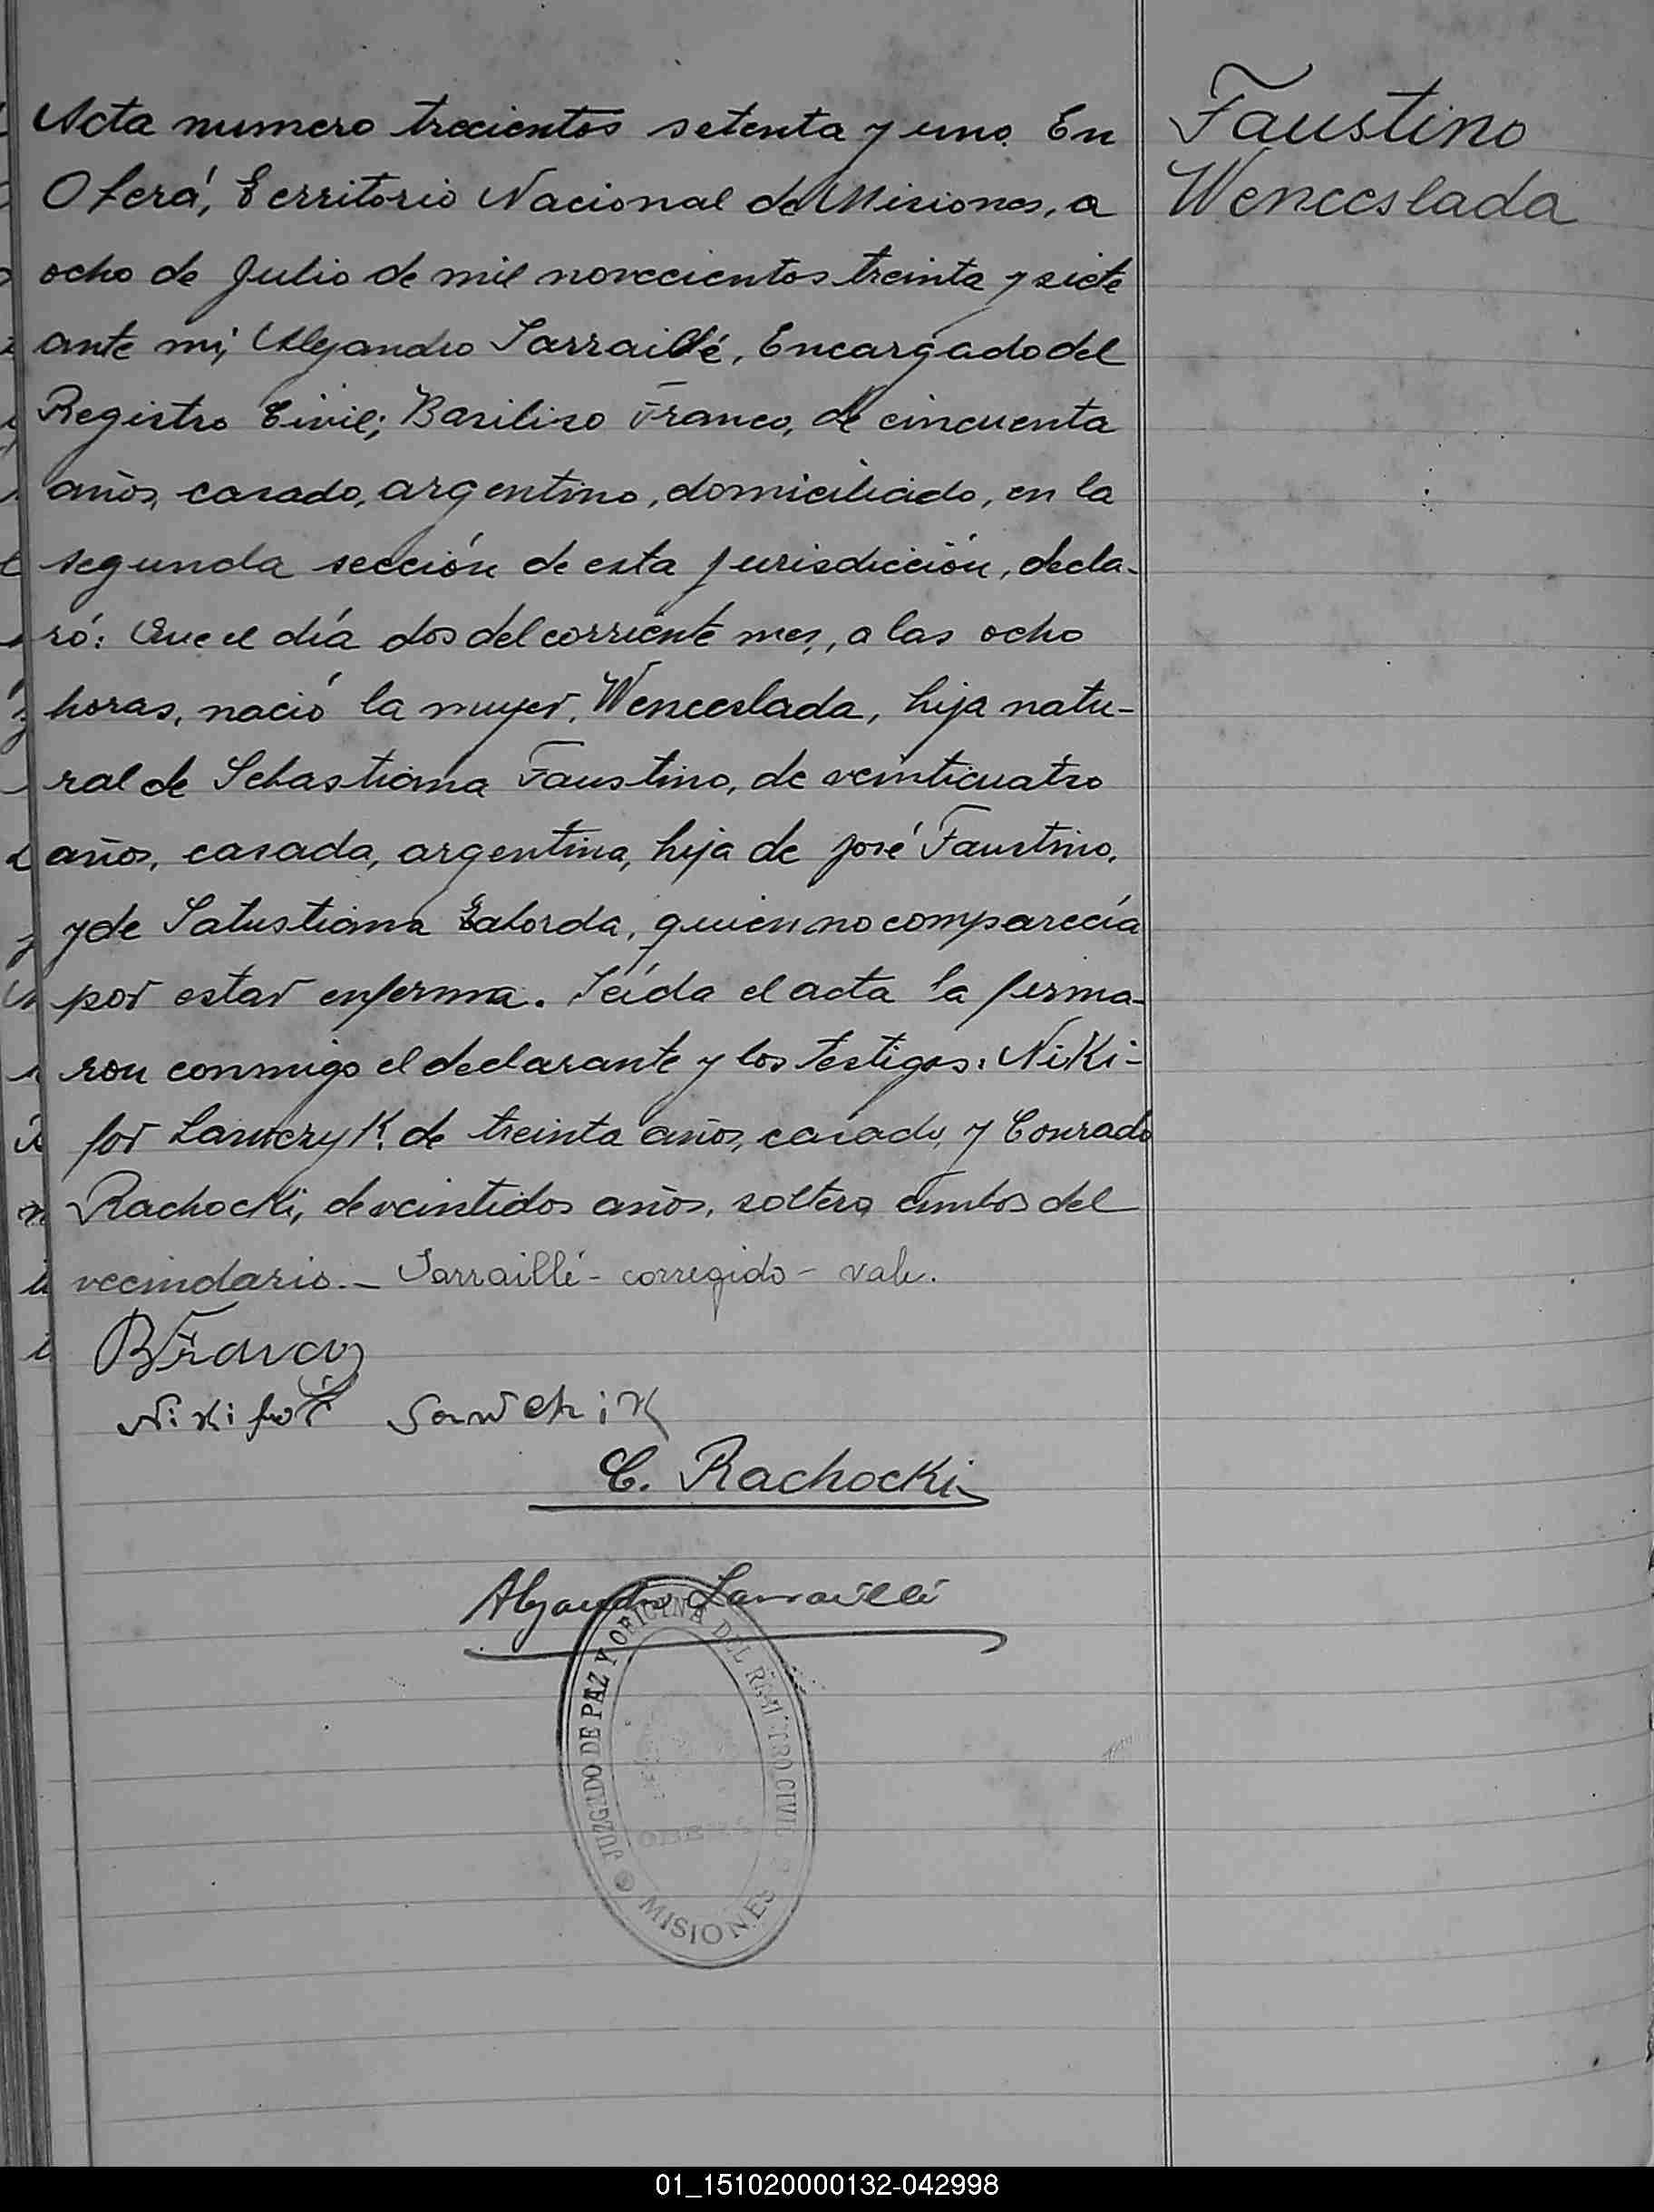 Acta numero trecientos setenta y uno. En
Oberá, Territorio Nacional de Misiones, a
ocho de Julio de mil novecientos treinta y siete
ante mi, Alejandro Larraillé, Encargado del
Registro Civil; Basiliso Franco, de cincuenta
años, casado, argentino, domiciliado, en la
segunda sección de esta jurisdicción, decla-
ró: Que el día dos del corriente mes, a las ocho
horas, nació la mujer, Wenceslada, hija natu-
ral de Sebastiana Faustino, de veinticuatro
años, casada, argentina, hija de José Faustino,
y de Satustiana Taborda, quien no comparecía
por estar enferma. Leída el acta la firma-
ron conmigo el declarante y los testigos: Niki-
for Lawczyk. de treinta años, casado, y Conrado
Rachocki, de veintidos años, soltero, ambos del
vecindario.- Larraillé - corregido - vale.
BFranco
Nikifor Sawchik
C. Rachocki
Alejandro Larraillé
JUZGADO DE PAZ Y OFICINA DEL REGISTRO CIVIL
OBERA
MISIONES
Faustino
Wenceslada
01_151020000132-042998